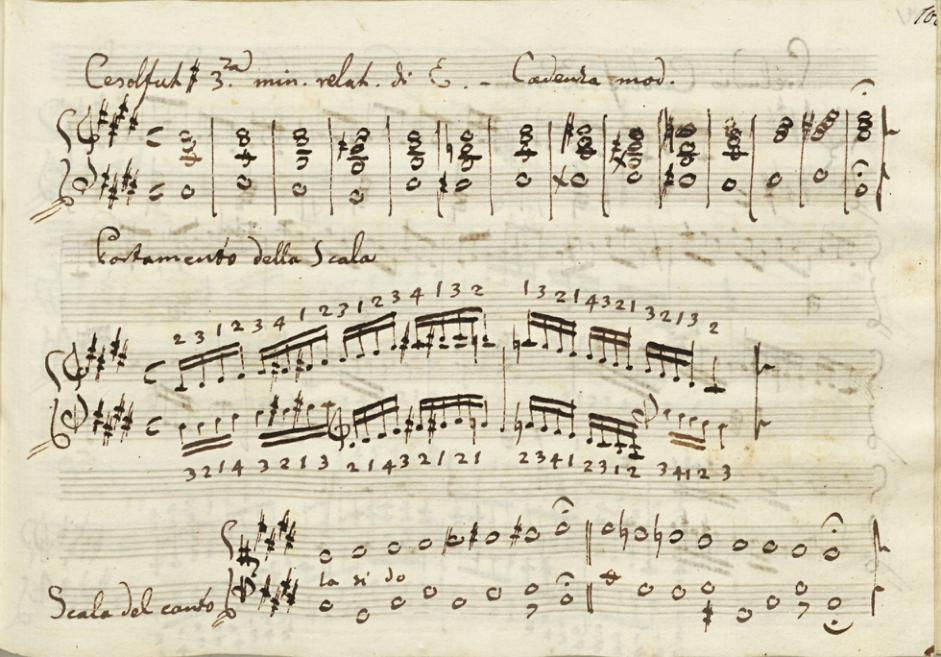 Cesolfaut # 3.za min. relat. di E. - Cadenza mod.
Portamento della Scala
2 3 1 2 3 4 1 2 3 1 2 3 4 1 3 2 1 3 2 1 4 3 2 1 3 2 1 3 2
3 2 1 4 3 2 1 3 2 1 4 3 2 1 2 1 2 3 4 1 2 3 1 2 3 4 1 2 3
la si do
Scala del canto